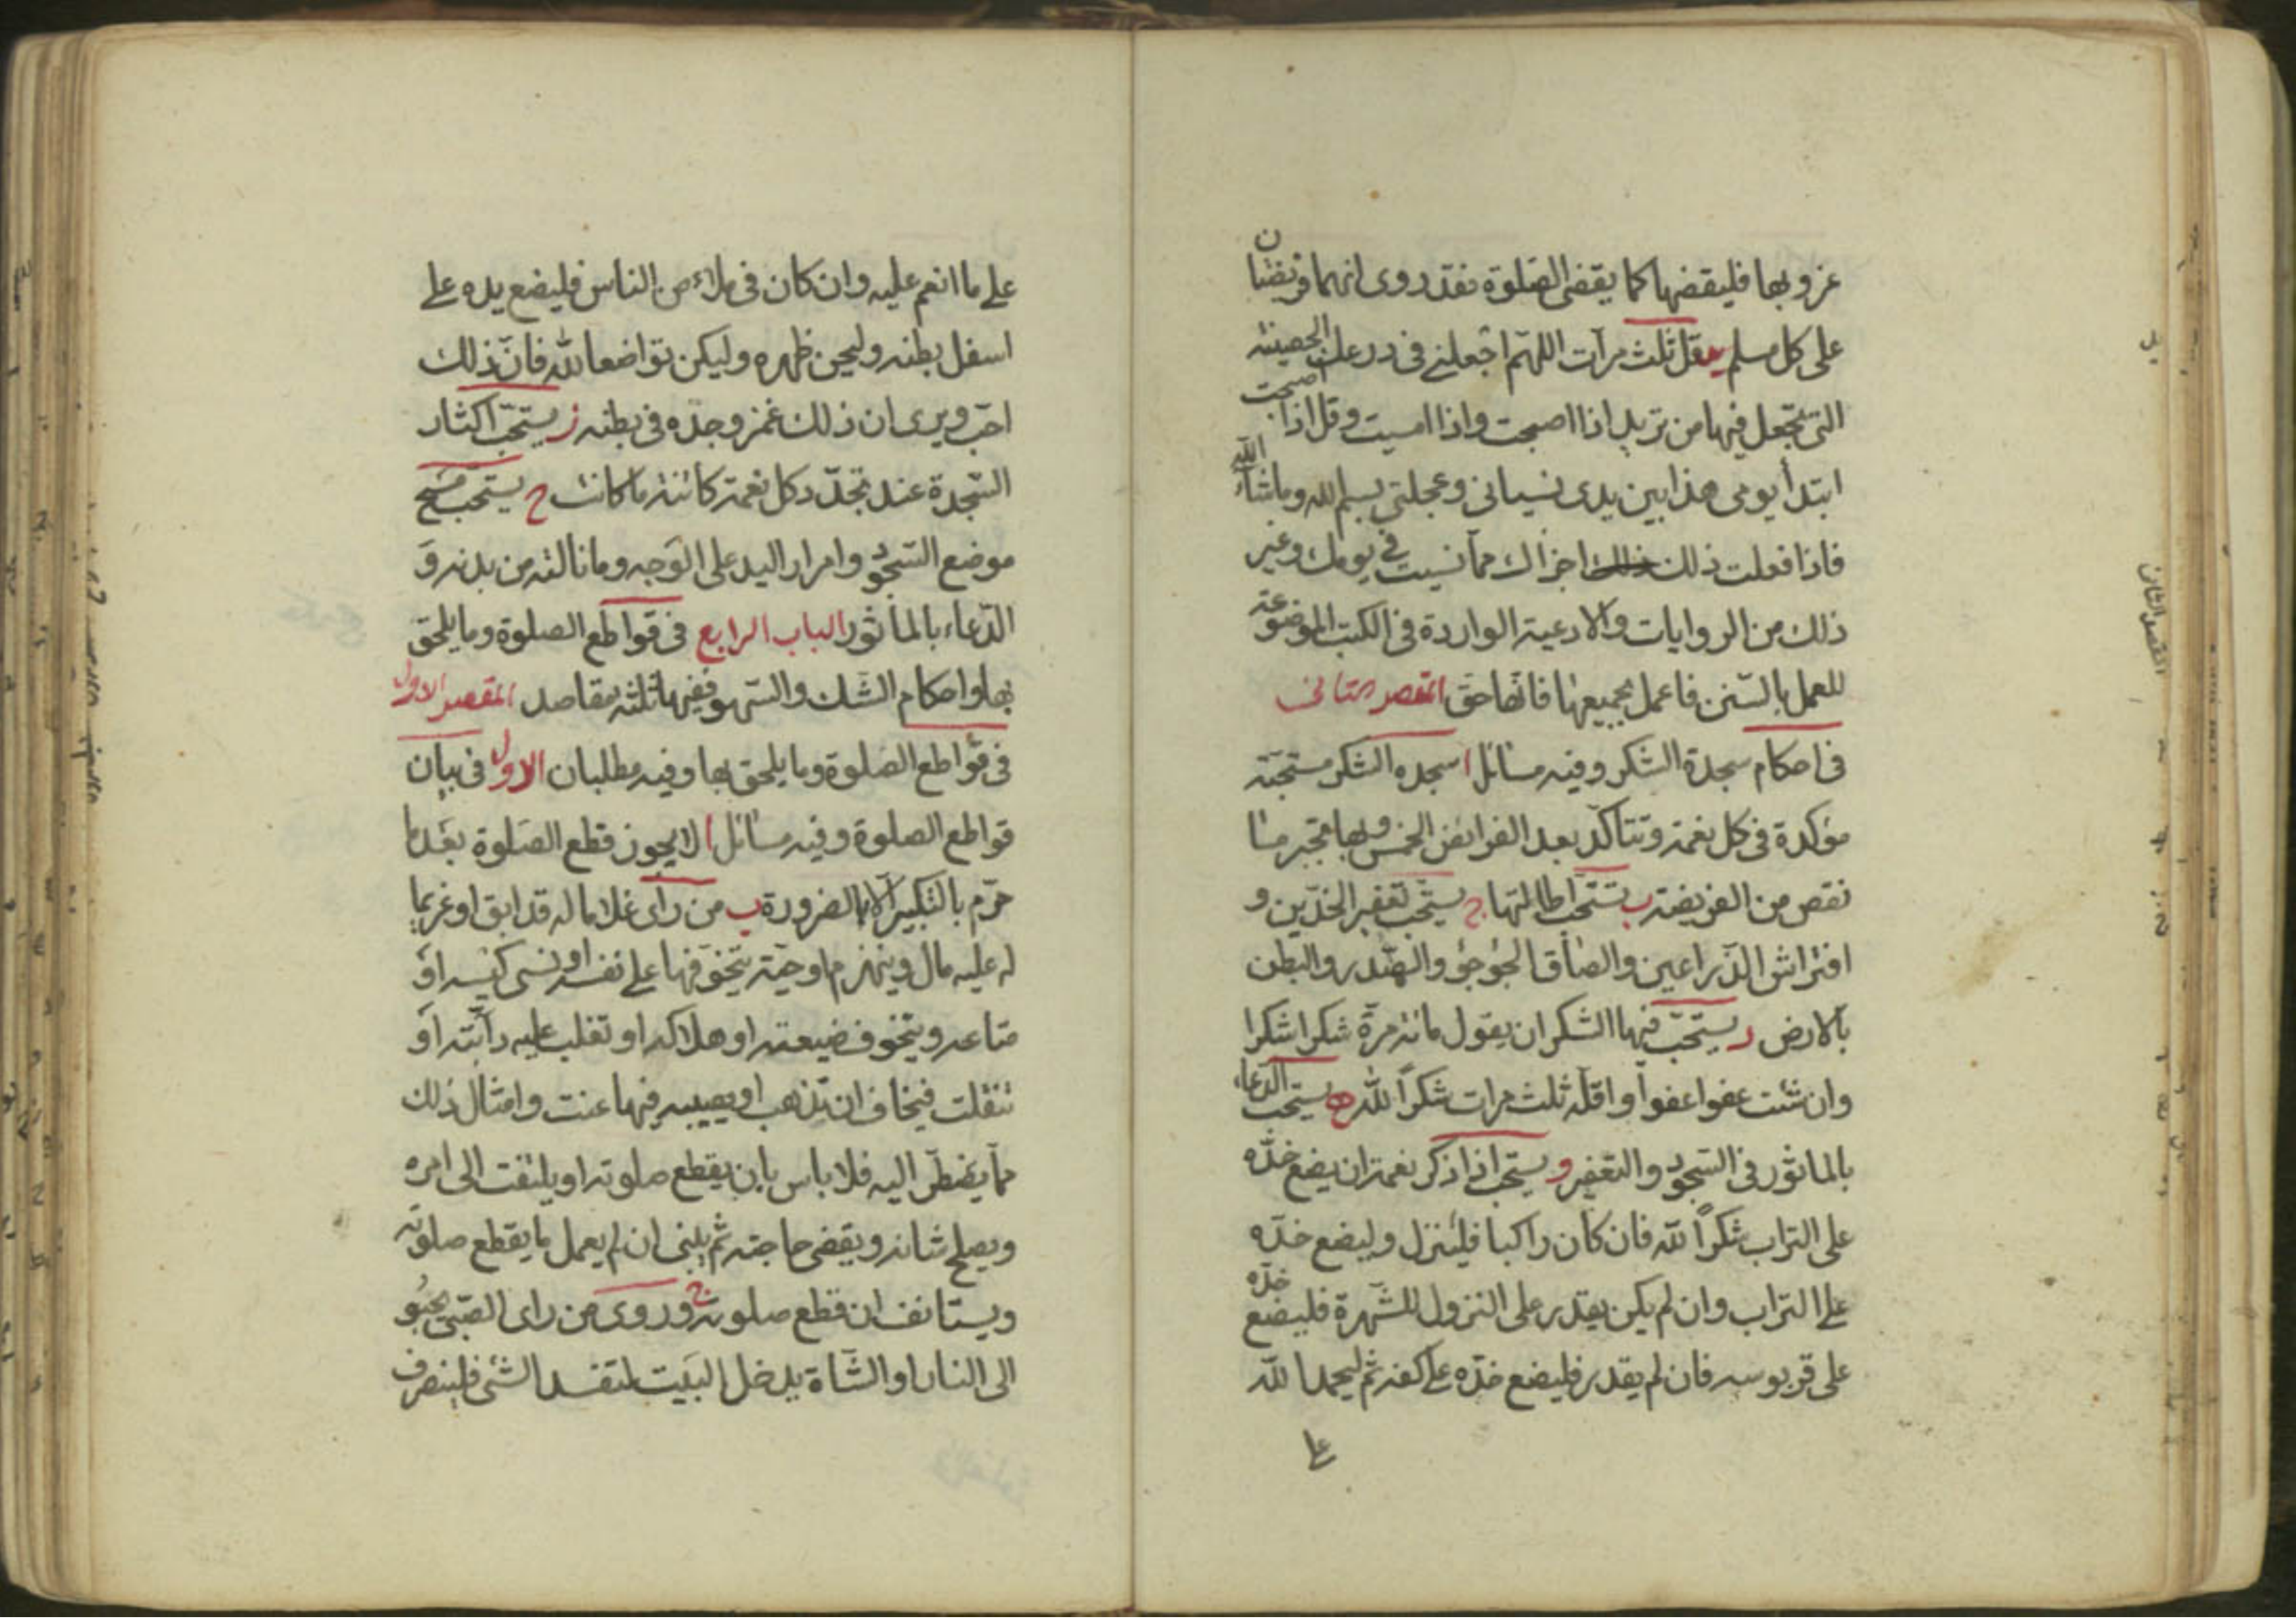 غروبها فليقضها كما يقضى الصلوة فقد روى انهما فريضتان
على كل مسلم يد قل ثلث مرآت اللهّم اجعلنے فى درعك الحصينة
التى تجعل فيها من تريد اذا اصبحت واذا امسيت وقل اذا اصبحت
ابتدأ يومى هذا بين يدى نسيانى وعجلتى بسم الله وما شاء الله
فاذا فعلت ذلك اجزاك ممآ نسيت فى يومك وغير
ذلك من الروايات والادعية الواردة فى الكتب الموضوعة
للعمل بالسّنن فاعمل بجميعها فانّها حق المقصد الثانى
فى احكام سجدة الشكر وفيه مسائل ا سجده الشكر مستحبّة
مؤكدة فى كل نعمة وتتاكّد بعد الفرائض الخمس وبها تجبر ما
نقص من الفريضة ب تستحّب اطالتها ج يستحّب تعفير الخدّين و
افتراش الذّراعين والصاق الجؤجؤ والصّدر والبطن
بالارض د يستحّب فيها الشكر ان يقول مائة مرّة شكرا شكرا
وان شئت عفوا عفوا واقلّه ثلث مرات شكراً لله ه يستحب الدعاء
بالماثور فى السجود والتعفير و يستحب اذا ذكر نعمة ان يضع خدّه
على التراب شكراً لله فان كان راكبا فلينزل وليضع خدّه
علے التراب وان لم يكن يقدر على النزول للشّهرة فليضع خدّه
على قربوسه فان لم يقدر فليضع خدّه علے كفه ثم ليحمد الله
علے
علے ما انعم عليه وان كان فى ملاء من الناس فليضع يده علے
اسفل بطنه وليحن ظهره وليكن تواضعا لله فانّ ذلك
احّب ويرى ان ذلك غمز وجده فى بطنه ز يستحّب اكثار
السّجدة عند تجدّد كل نعمة كائنة ما كانت ح يستحب مسح
موضع السّجود وامرار اليد على الوجه وما نالته من بدنه و
الدّعاء بالماثور الباب الرابع فى قواطع الصلوة وما يلحق
بها واحكام الشّك والسّهو ففيها ثلثة مقاصد المقصد الاول
فى قواطع الصّلوة وما يلحق بها وفيه مطلبان الاول فى بيان
قواطع الصلوة وفيه مسائل ا لا يجوز قطع الصّلوة بعدما
حرّم بالتكبير الّا بالضرورة ب من راى غلاما له قد ابق او غريما
له عليه مال وينهزم او حيّة يتخوّفها على نفسه او نسى كيسه او
متاعه ويتخوف ضيعته او هلاكه او تغلب عليه دابّته او
تنفلت فيخاف ان تذهب او يصيبه فيها عنت وامثال ذلك
ممآ يضطّر اليه فلا باس بان يقطع صلوته او يلتفت الى امره
ويصلح شانه ويقضى حاجته ثم يبنى ان لم يعمل ما يقطع صلوته
ويستانف ان قطع صلوته ج وروى من راى الصّبى يحبُو
الى النار او الشّاة يدخل البيت لتفسد الشئ فلينصرف
المقصد الثانى